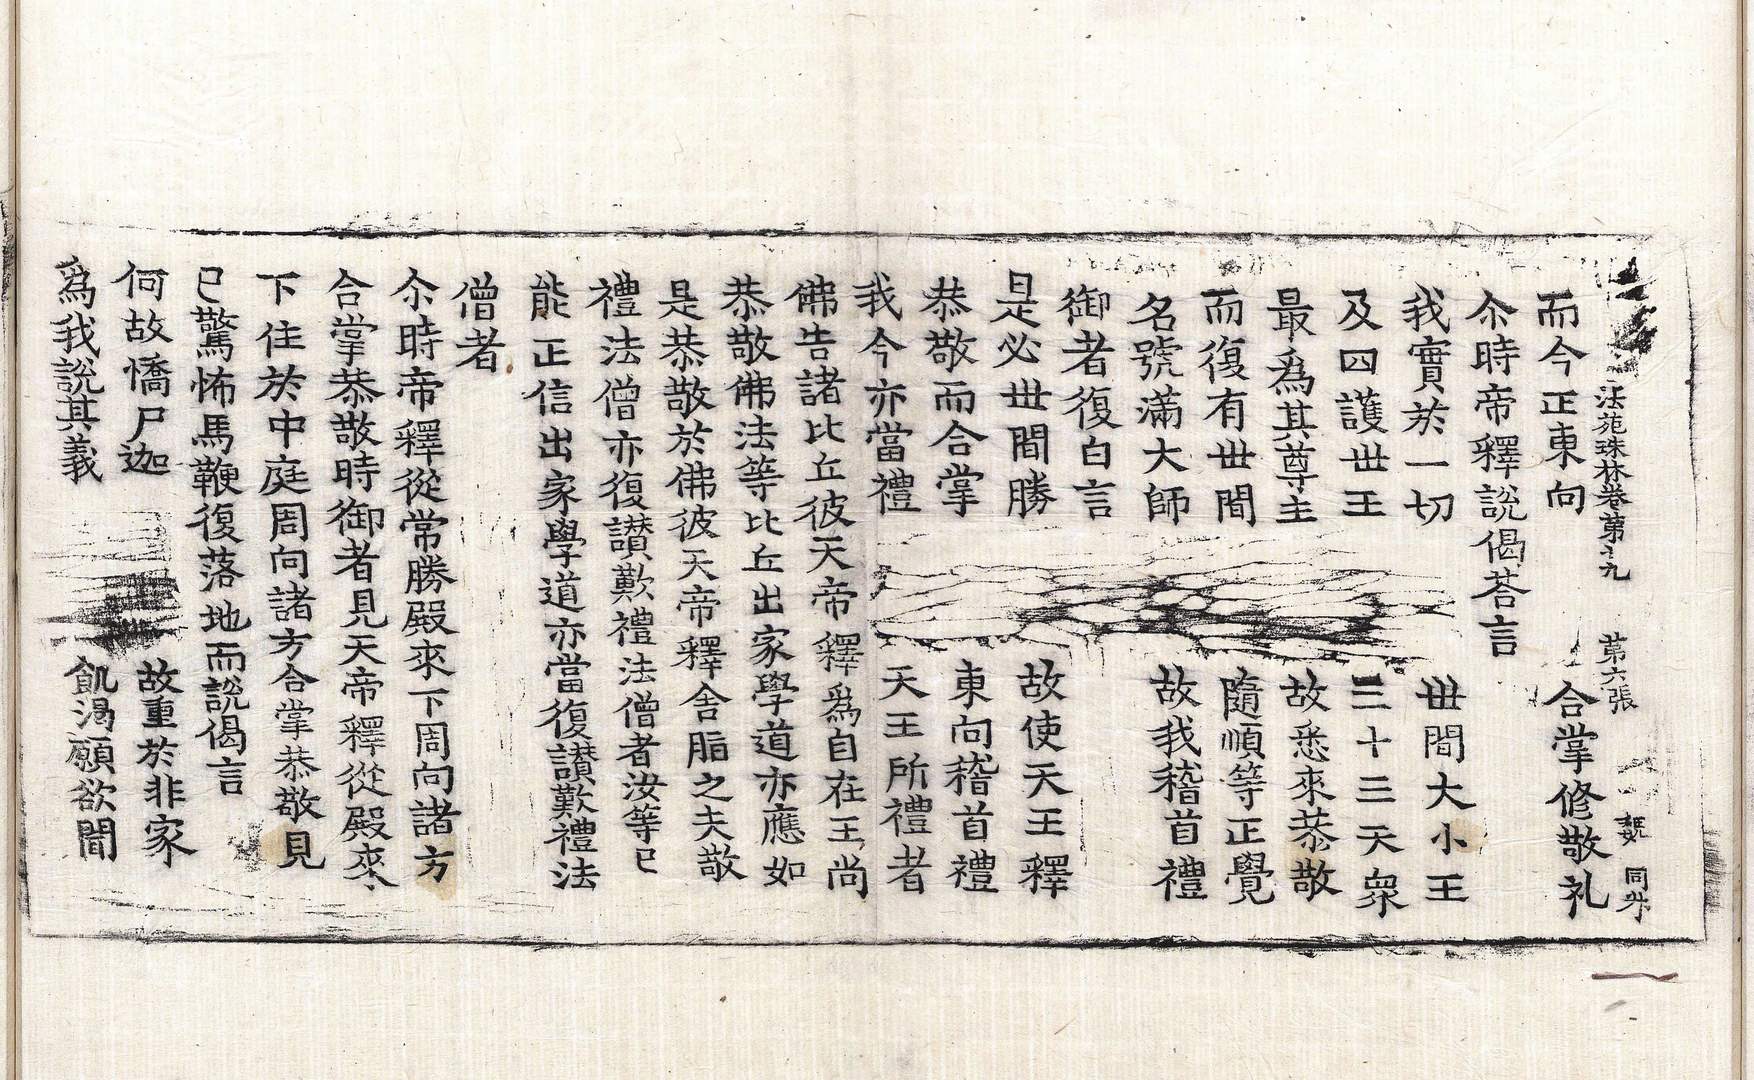 法苑珠林卷第十九　第六張　同
而今正東向　合掌修敬礼
尒時帝釋說偈荅言
我實於一切　世間大小王
及四護世王　三十三天衆
最爲其尊主　故悉來恭敬
而復有世間　隨順等正覺
名號滿大師　故我稽首禮
御者復白言
是必世間勝　故使天王釋
恭敬而合掌　東向稽首禮
我今亦當禮　天王所禮者
佛告諸比丘彼天帝釋爲自在王尚
恭敬佛法等比丘出家學道亦應如
是恭敬於佛彼天帝釋舍脂之夫敬
禮法僧亦復讃歎禮法僧者汝等已
能正信出家學道亦當復讃歎禮法
僧者
尒時帝釋從常勝殿來下周向諸方
合掌恭敬時御者見天帝釋從殿來
下住於中庭周向諸方合掌恭敬見
已驚怖馬鞭復落地而說偈言
何故憍尸迦　故重於非家
爲我說其義　飢渴願欲聞